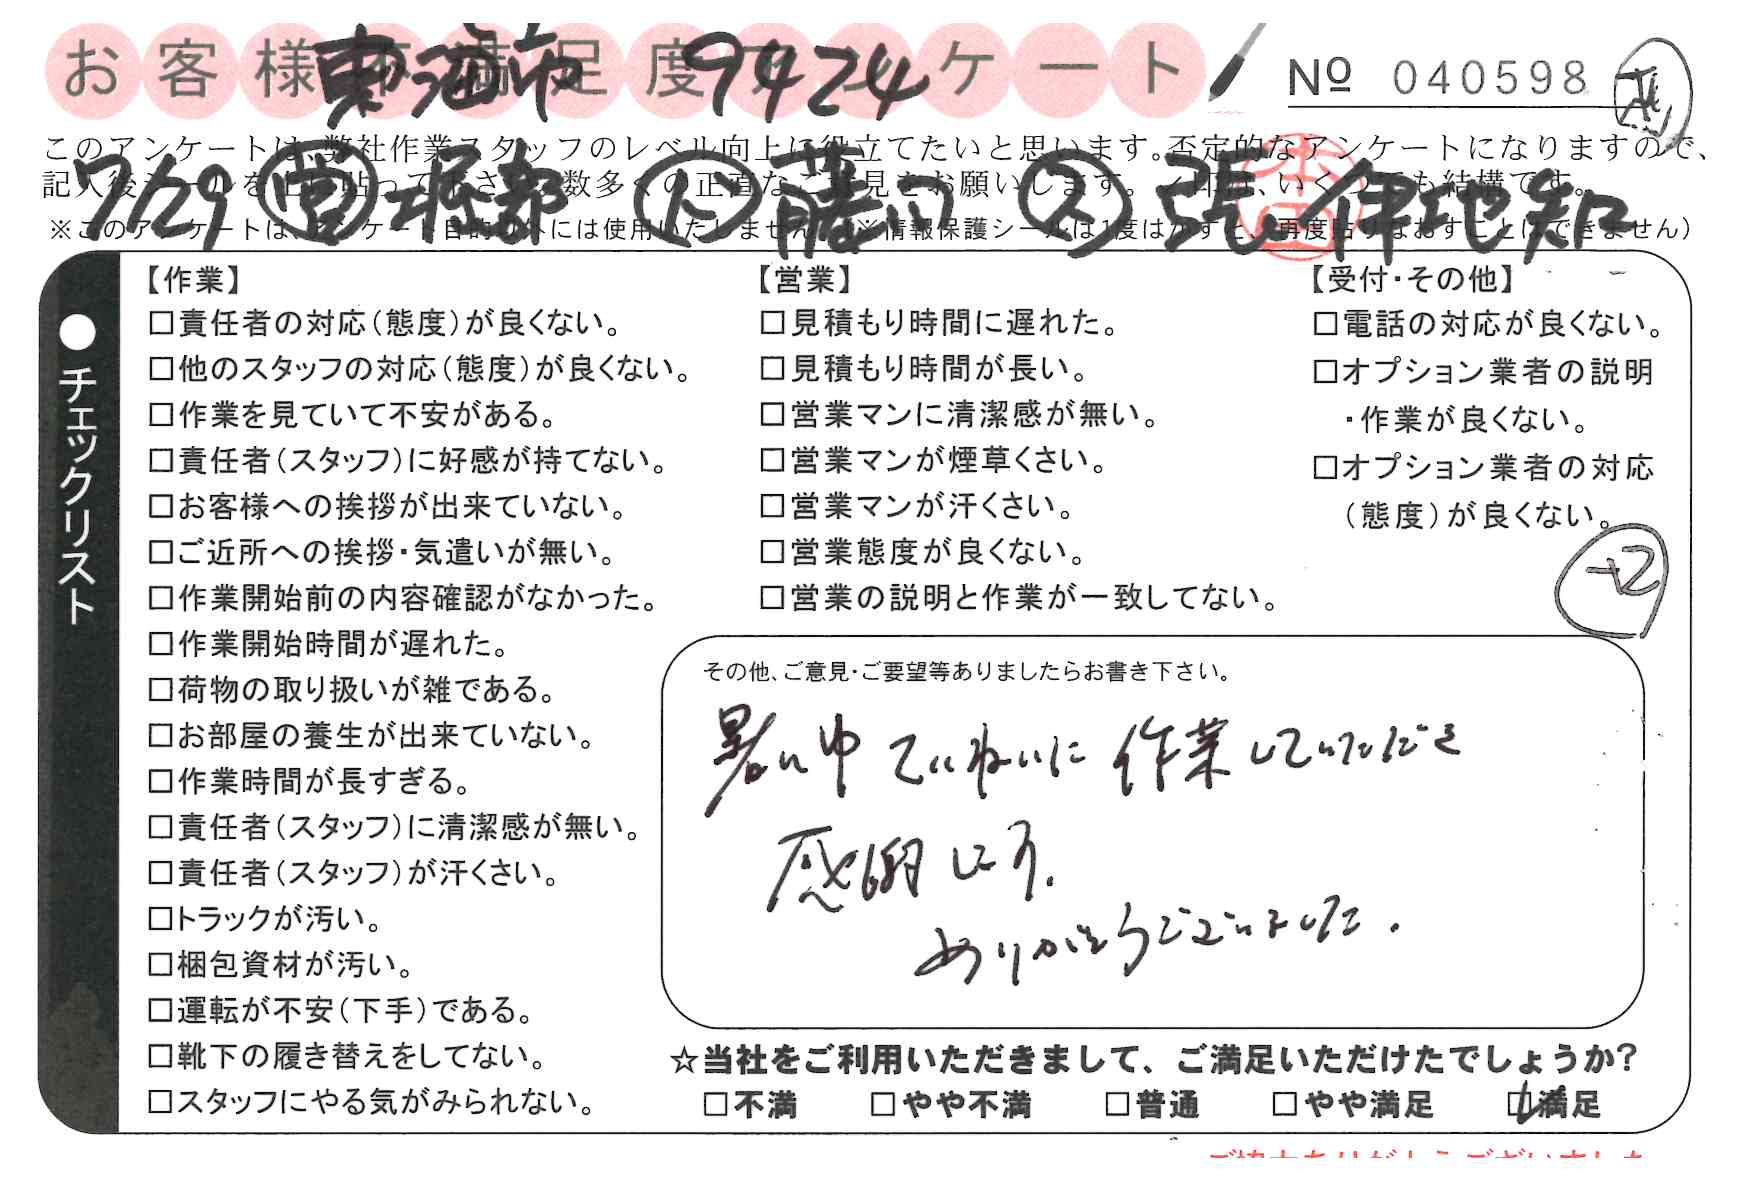 お客様不満足度アンケート
東海市 9424
№ 040598
このアンケートは、弊社作業スタッフのレベル向上に役立てたいと思います。否定的なアンケートになりますので、
記入後シールを上に貼って下さい。数多くの正直なご意見をお願いします。✓印は、いくつでも結構です。
7/29 営 服部 仁 藤田 ス 張 伊地知
※このアンケートは、アンケート目的以外には使用いたしません。(※情報保護シールは1度はがすと、再度貼りなおすことはできません)
本田
●チェックリスト
【作業】
□責任者の対応(態度)が良くない。
□他のスタッフの対応(態度)が良くない。
□作業を見ていて不安がある。
□責任者(スタッフ)に好感が持てない。
□お客様への挨拶が出来ていない。
□ご近所への挨拶・気遣いが無い。
□作業開始前の内容確認がなかった。
□作業開始時間が遅れた。
□荷物の取り扱いが雑である。
□お部屋の養生が出来ていない。
□作業時間が長すぎる。
□責任者(スタッフ)に清潔感が無い。
□責任者(スタッフ)が汗くさい。
□トラックが汚い。
□梱包資材が汚い。
□運転が不安(下手)である。
□靴下の履き替えをしてない。
□スタッフにやる気がみられない。
【営業】
□見積もり時間に遅れた。
□見積もり時間が長い。
□営業マンに清潔感が無い。
□営業マンが煙草くさい。
□営業マンが汗くさい。
□営業態度が良くない。
□営業の説明と作業が一致してない。
【受付・その他】
□電話の対応が良くない。
□オプション業者の説明
・作業が良くない。
□オプション業者の対応
(態度)が良くない。
+2
その他、ご意見・ご要望等ありましたらお書き下さい。
暑い中 ていねいに 作業していただき
感謝します.
ありがとうございました.
☆当社をご利用いただきまして、ご満足いただけたでしょうか?
□不満 □やや不満 □普通 □やや満足 ☑満足
ご協力ありがとうございました